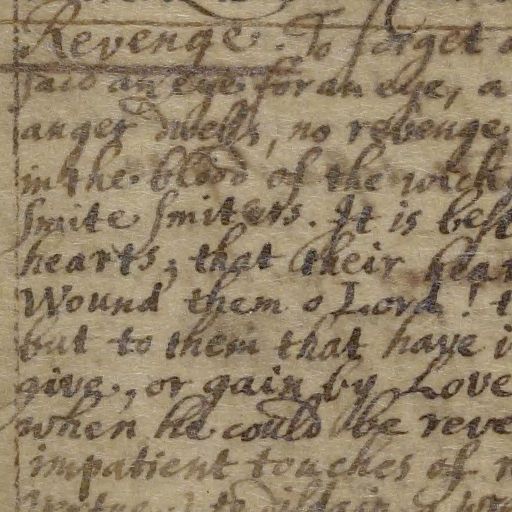 Revenge. To forget
said an eye for an eye, a
anger dwells, no revenge
in the blood of the wick
smite smiters. It is best
hearts, that their hear
Wound them o Lord! t
but to them that have i
give, or gain by Love
when he could be reve
impatient touches of